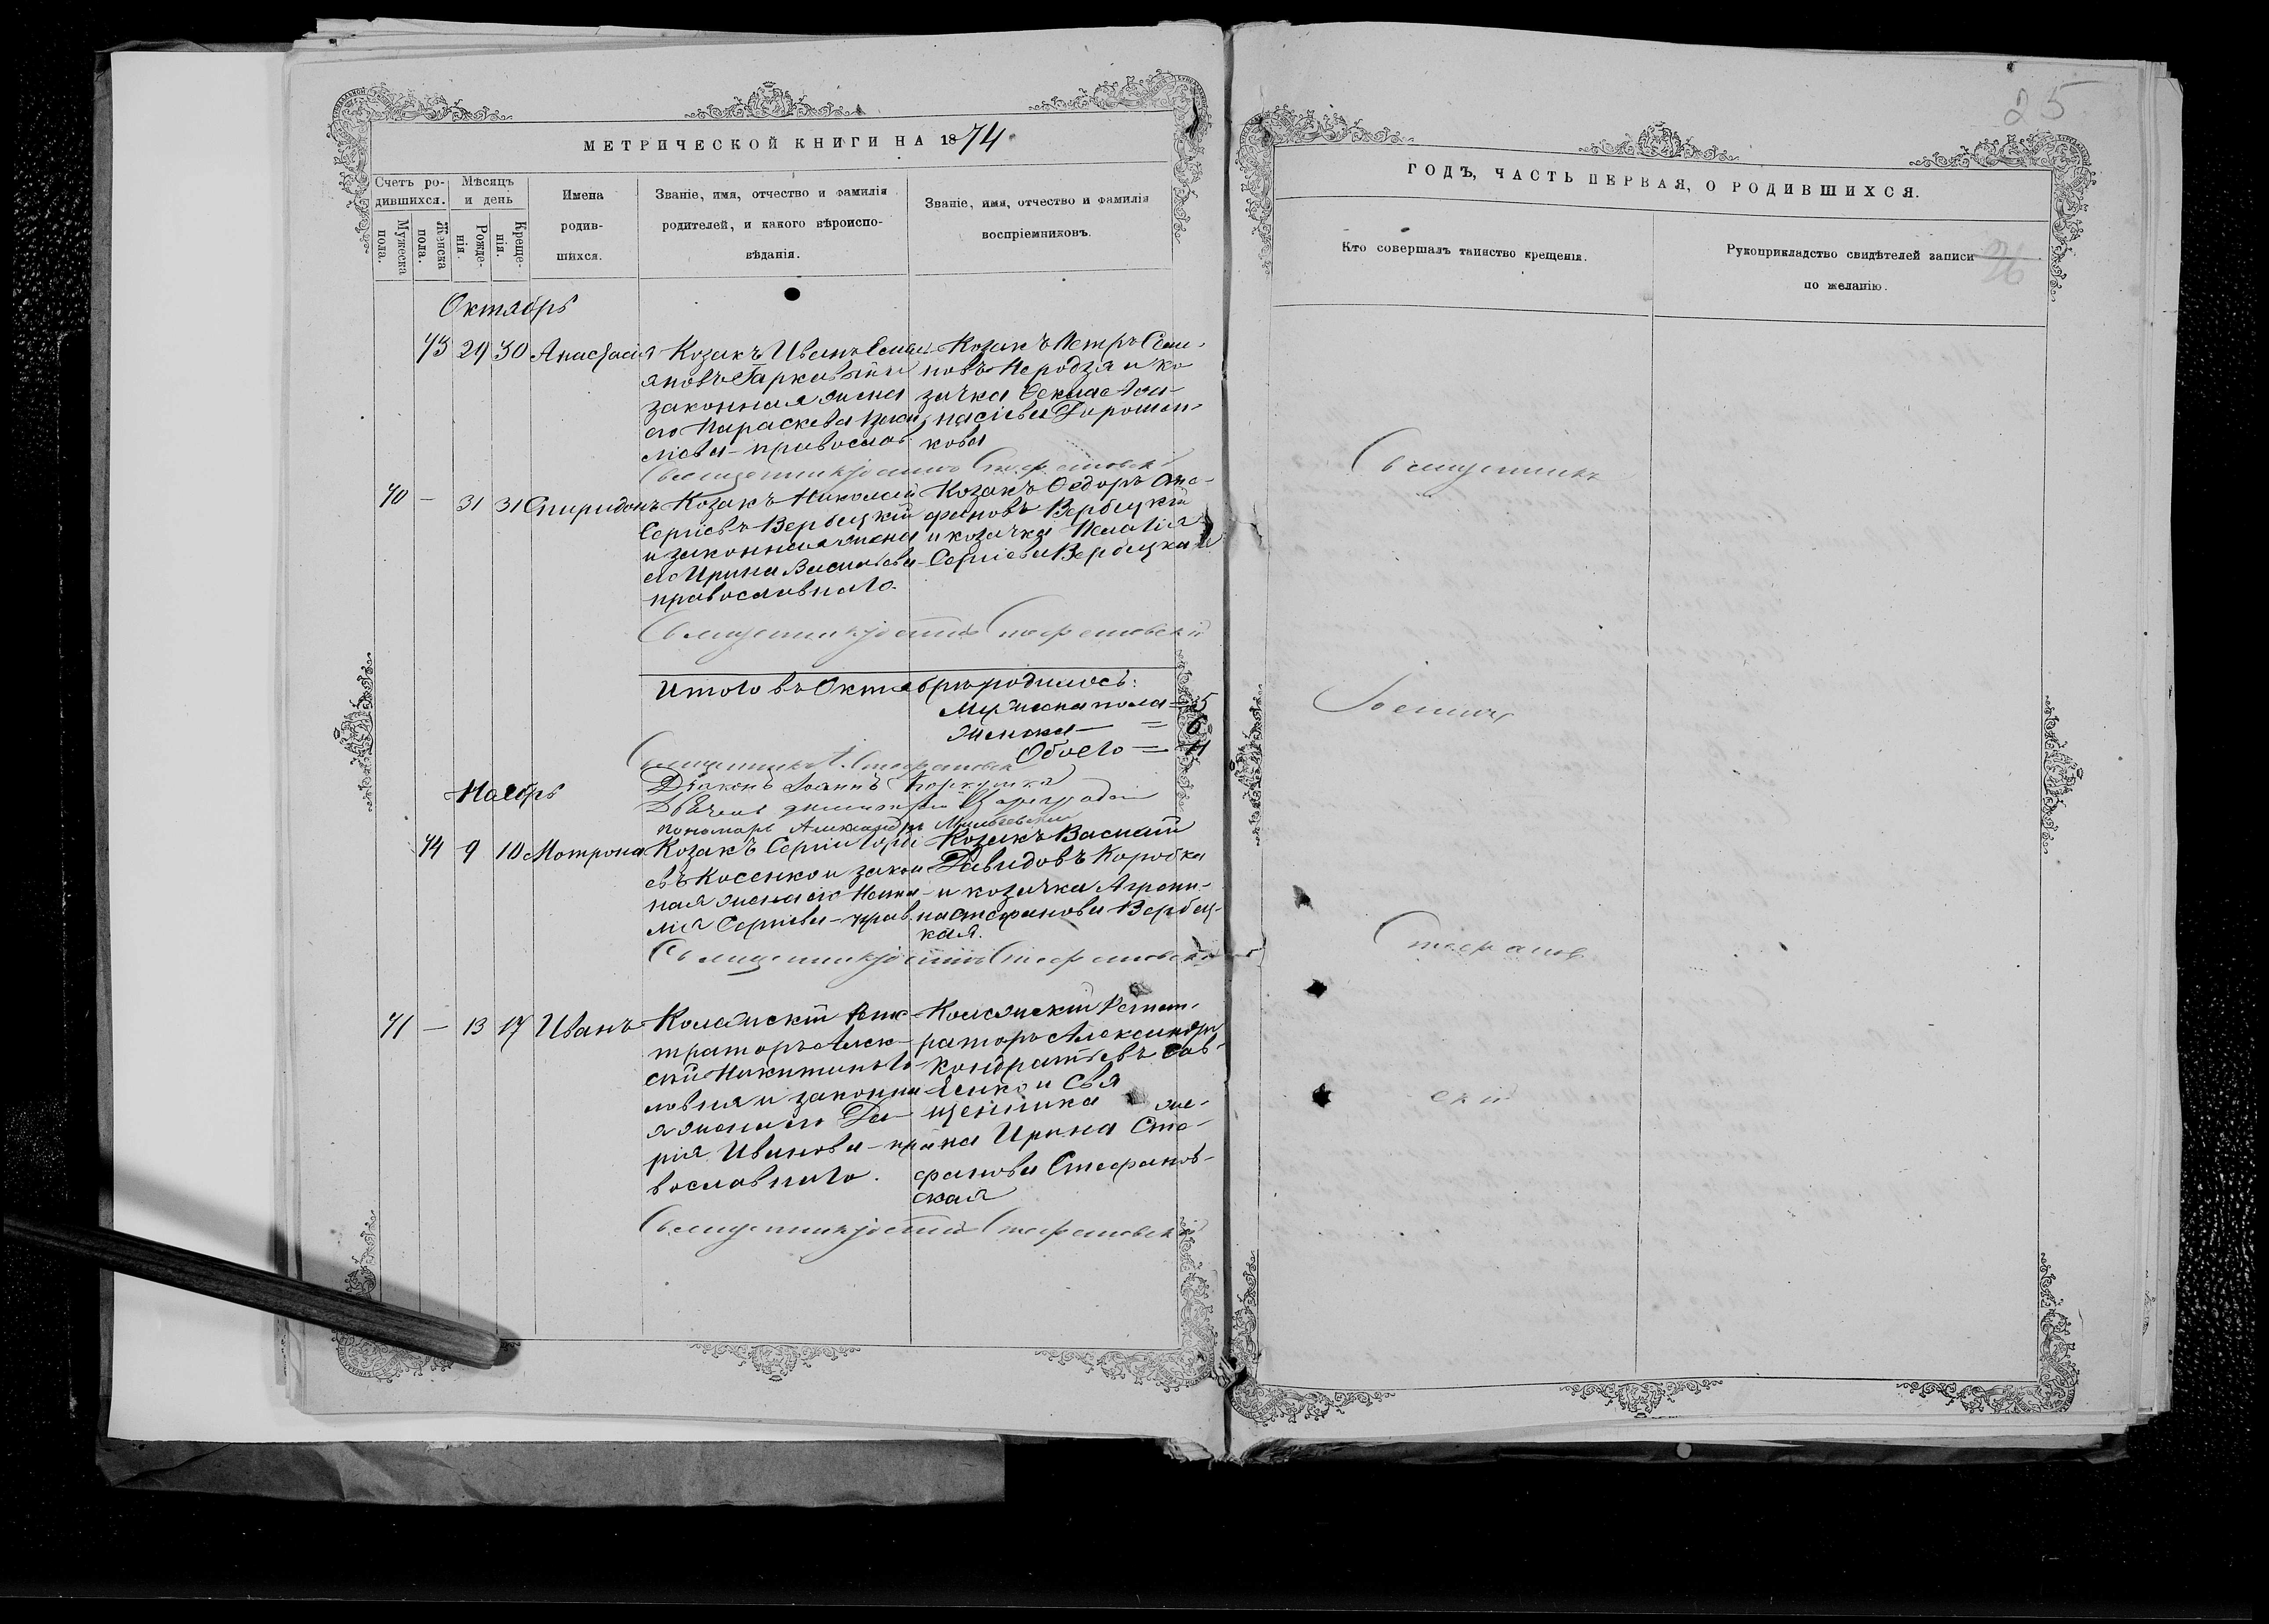 МЕТРИЧЕСКОЙ КНИГИ НА 1874
Счетъ ро-
дившихся.
Мужеска
пола.
Женска
пола.
Мѣсяцъ
и день
Рожде-
нія.
Креще-
нія.
Имена
родив-
шихся.
Званіе, имя, отчество и фамилія
родителей, и какого вѣроиспо-
вѣданія.
Званіе, имя, отчество и фамилія
воспріемниковъ.
Октябрь
43 29 30 Анастасія
Козакъ Иванъ
яновъ и
законная жена
его Параскева
православ.
Козакъ Петръ Семе-
новъ и ко
зачка
Дорошен-
кова
Священникъ Іоаннъ Стефановскій
40 — 31 31 Спиридонъ
Козакъ Николай
Сергіевъ Вербицкій
и законная жена
его Ирина Васильева
православнаго.
Козакъ Федоръ Сте-
фановъ Вербицкій
и козачка Пелагія
Сергіева Вербицкая
Священникъ Іоаннъ Стефановскій
Итого въ Октябрѣ родилось:
Мужеска пола = 5
Женска — = 6
Обоего = 11
Священникъ І. Стефановскій
Діаконъ Іоаннъ
Дьячекъ
пономарь Александръ
Ноябрь
44 9 10 Мотрона
Козакъ Сергій
евъ Косенко и закон
ная жена его
Сергіева — прав.
Козакъ Василій
Давидовъ Коробка
и козачка Агрепи-
на Стефанова Вербиц-
кая.
Священникъ Іоаннъ Стефановскій
41 — 13 17 Иванъ
Колежскій Реги-
траторъ Алек-
сѣй Никитинъ Го-
ловня и законна
я жена его Да-
рія Иванова — пра
вославнаго.
Колежскій Регист-
раторъ Александръ
Кондратьевъ Сав-
и Свя
щенника же-
на Ирина Сте-
фанова Стефанов-
ская
Священникъ Іоаннъ Стефановскій
25
ГОДЪ, ЧАСТЬ ПЕРВАЯ, О РОДИВШИХСЯ.
Кто совершалъ таинство крещенія.
Рукоприкладство свидѣтелей записи
по желанію.
26
Священникъ
Іоаннъ
Стефанов
скій